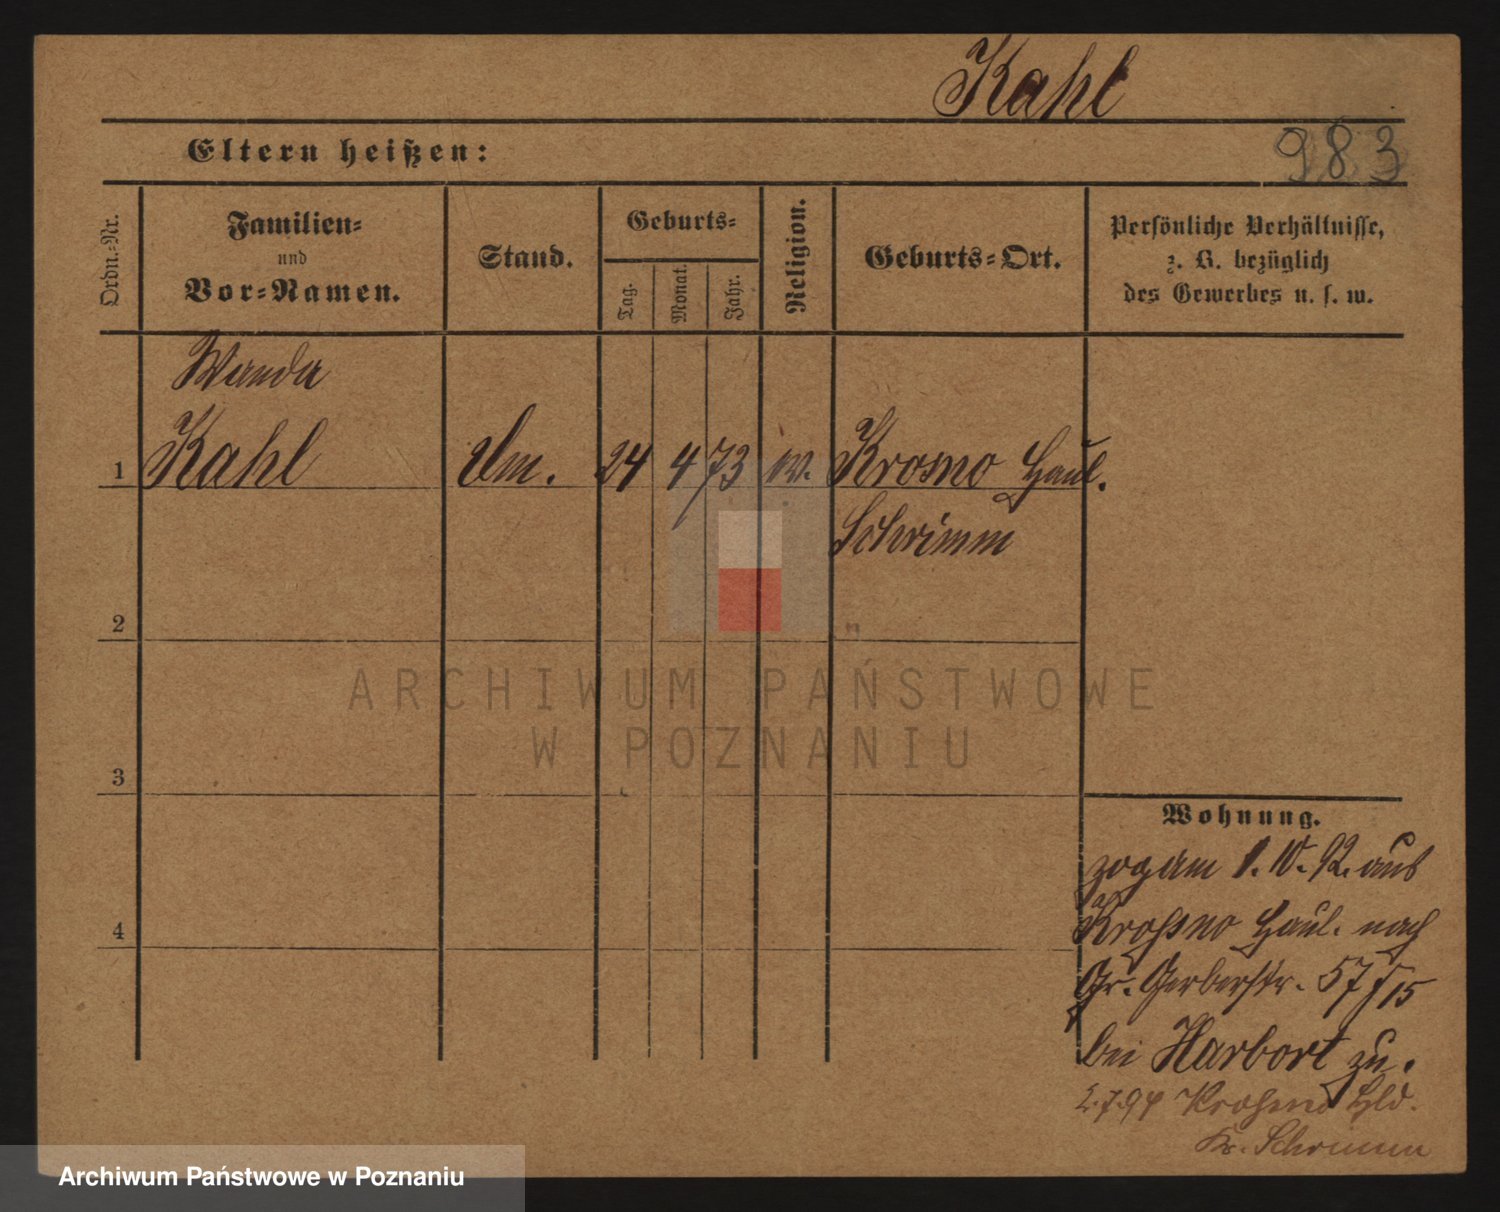 Kahl
983
Eltern heißen:
Ordn.-Nr.
Familien-
und
Vor-Namen.
Stand.
Geburts-
Tag.
Monat.
Jahr.
Religion.
Geburts-Ort.
Persönliche Verhältnisse,
z. B. bezüglich
des Gewerbes u. s. w.
Wanda
1 Kahl 24 4 73 Krosno Haul.
Schrimm
2
3
4
ARCHIWUM PAŃSTWOWE
W POZNANIU
Wohnung.
zog am 1.10.92. aus
Krossno Haul. nach
Gr. Gerberstr. 57
bei Harbort zu.
2.7.94 Krossno Hld.
Kr. Schrimm
Archiwum Państwowe w Poznaniu